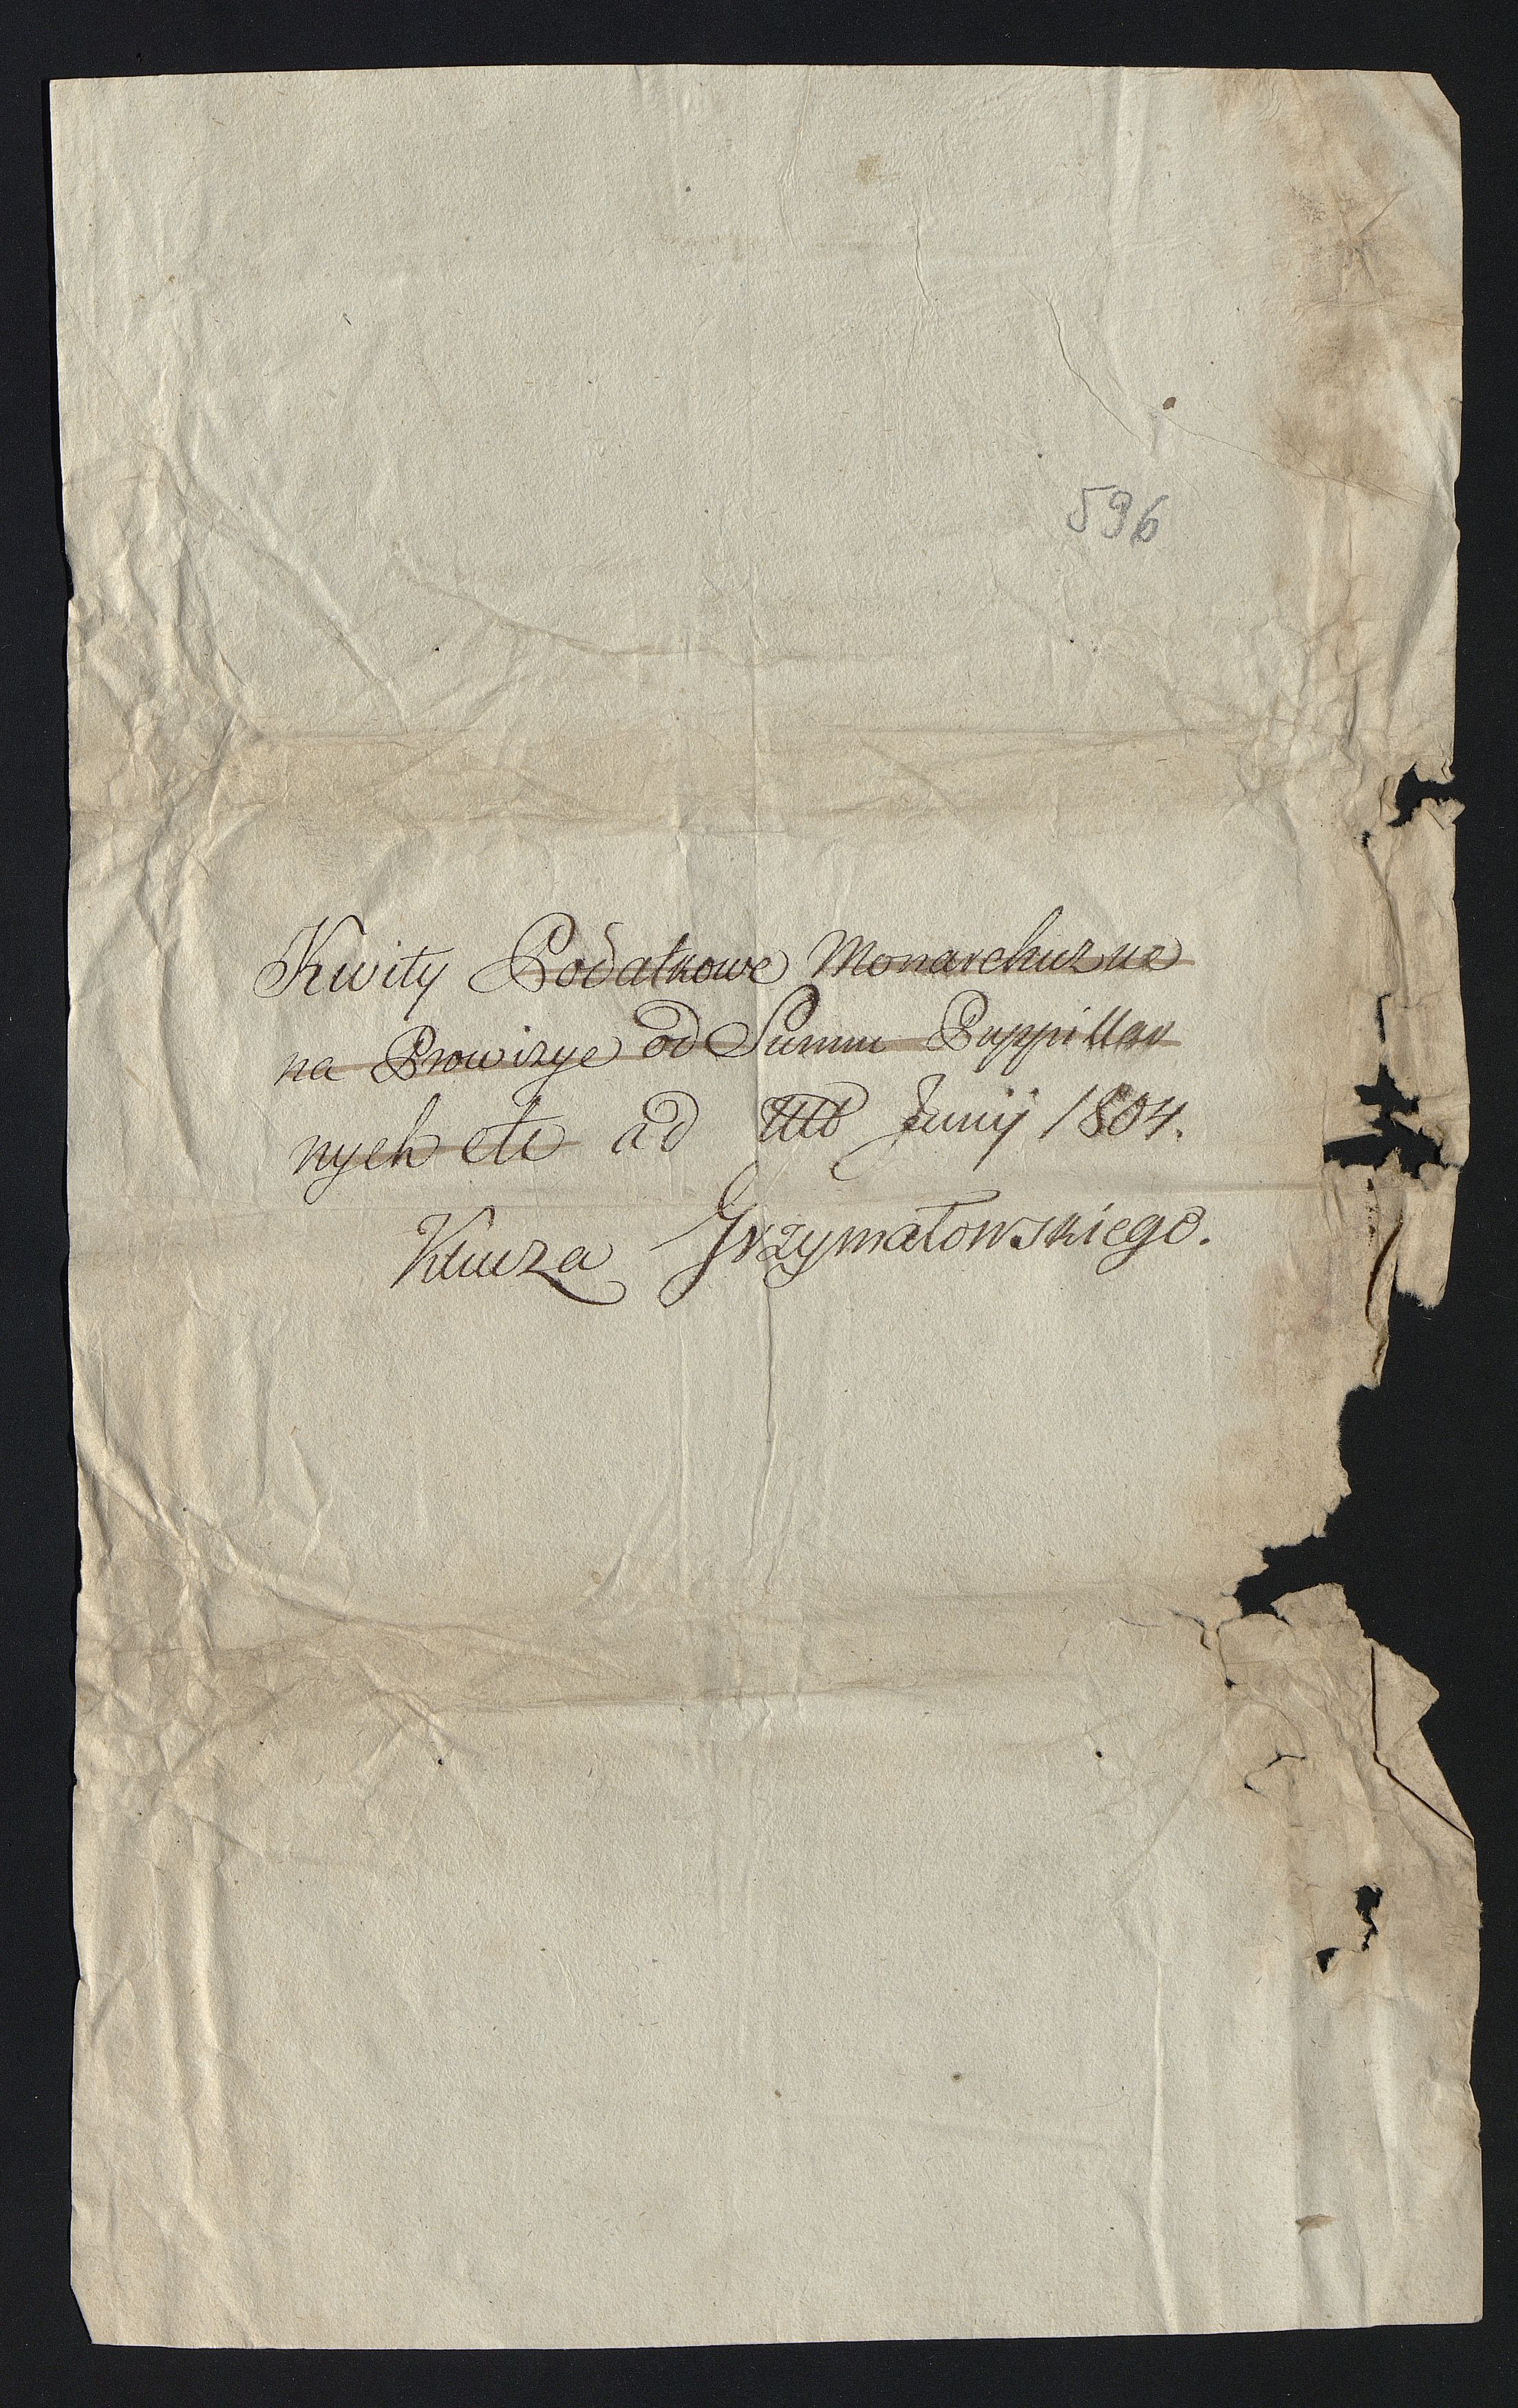 596
Kwity Podatkowe Monarchuzne
na Prowizye od Summ Puppillar
nych etc ad Junij 1804.
Klucza Grzymałowskiego.